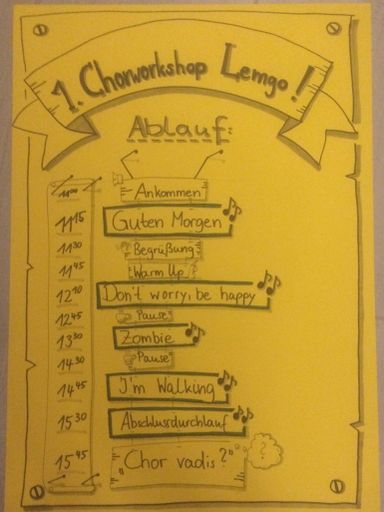 1. Chorworkshop Lemgo!
Ablauf:
11 00 Ankommen
11 15 Guten Morgen
11 30 Begrüßung
11 45 Warm Up
12 10 Don't worry, be happy
12 45 Pause
13 30 Zombie
14 30 Pause
14 45 I'm Walking
15 30 Abschlussdurchlauf
15 45 "Chor vadis?"
?